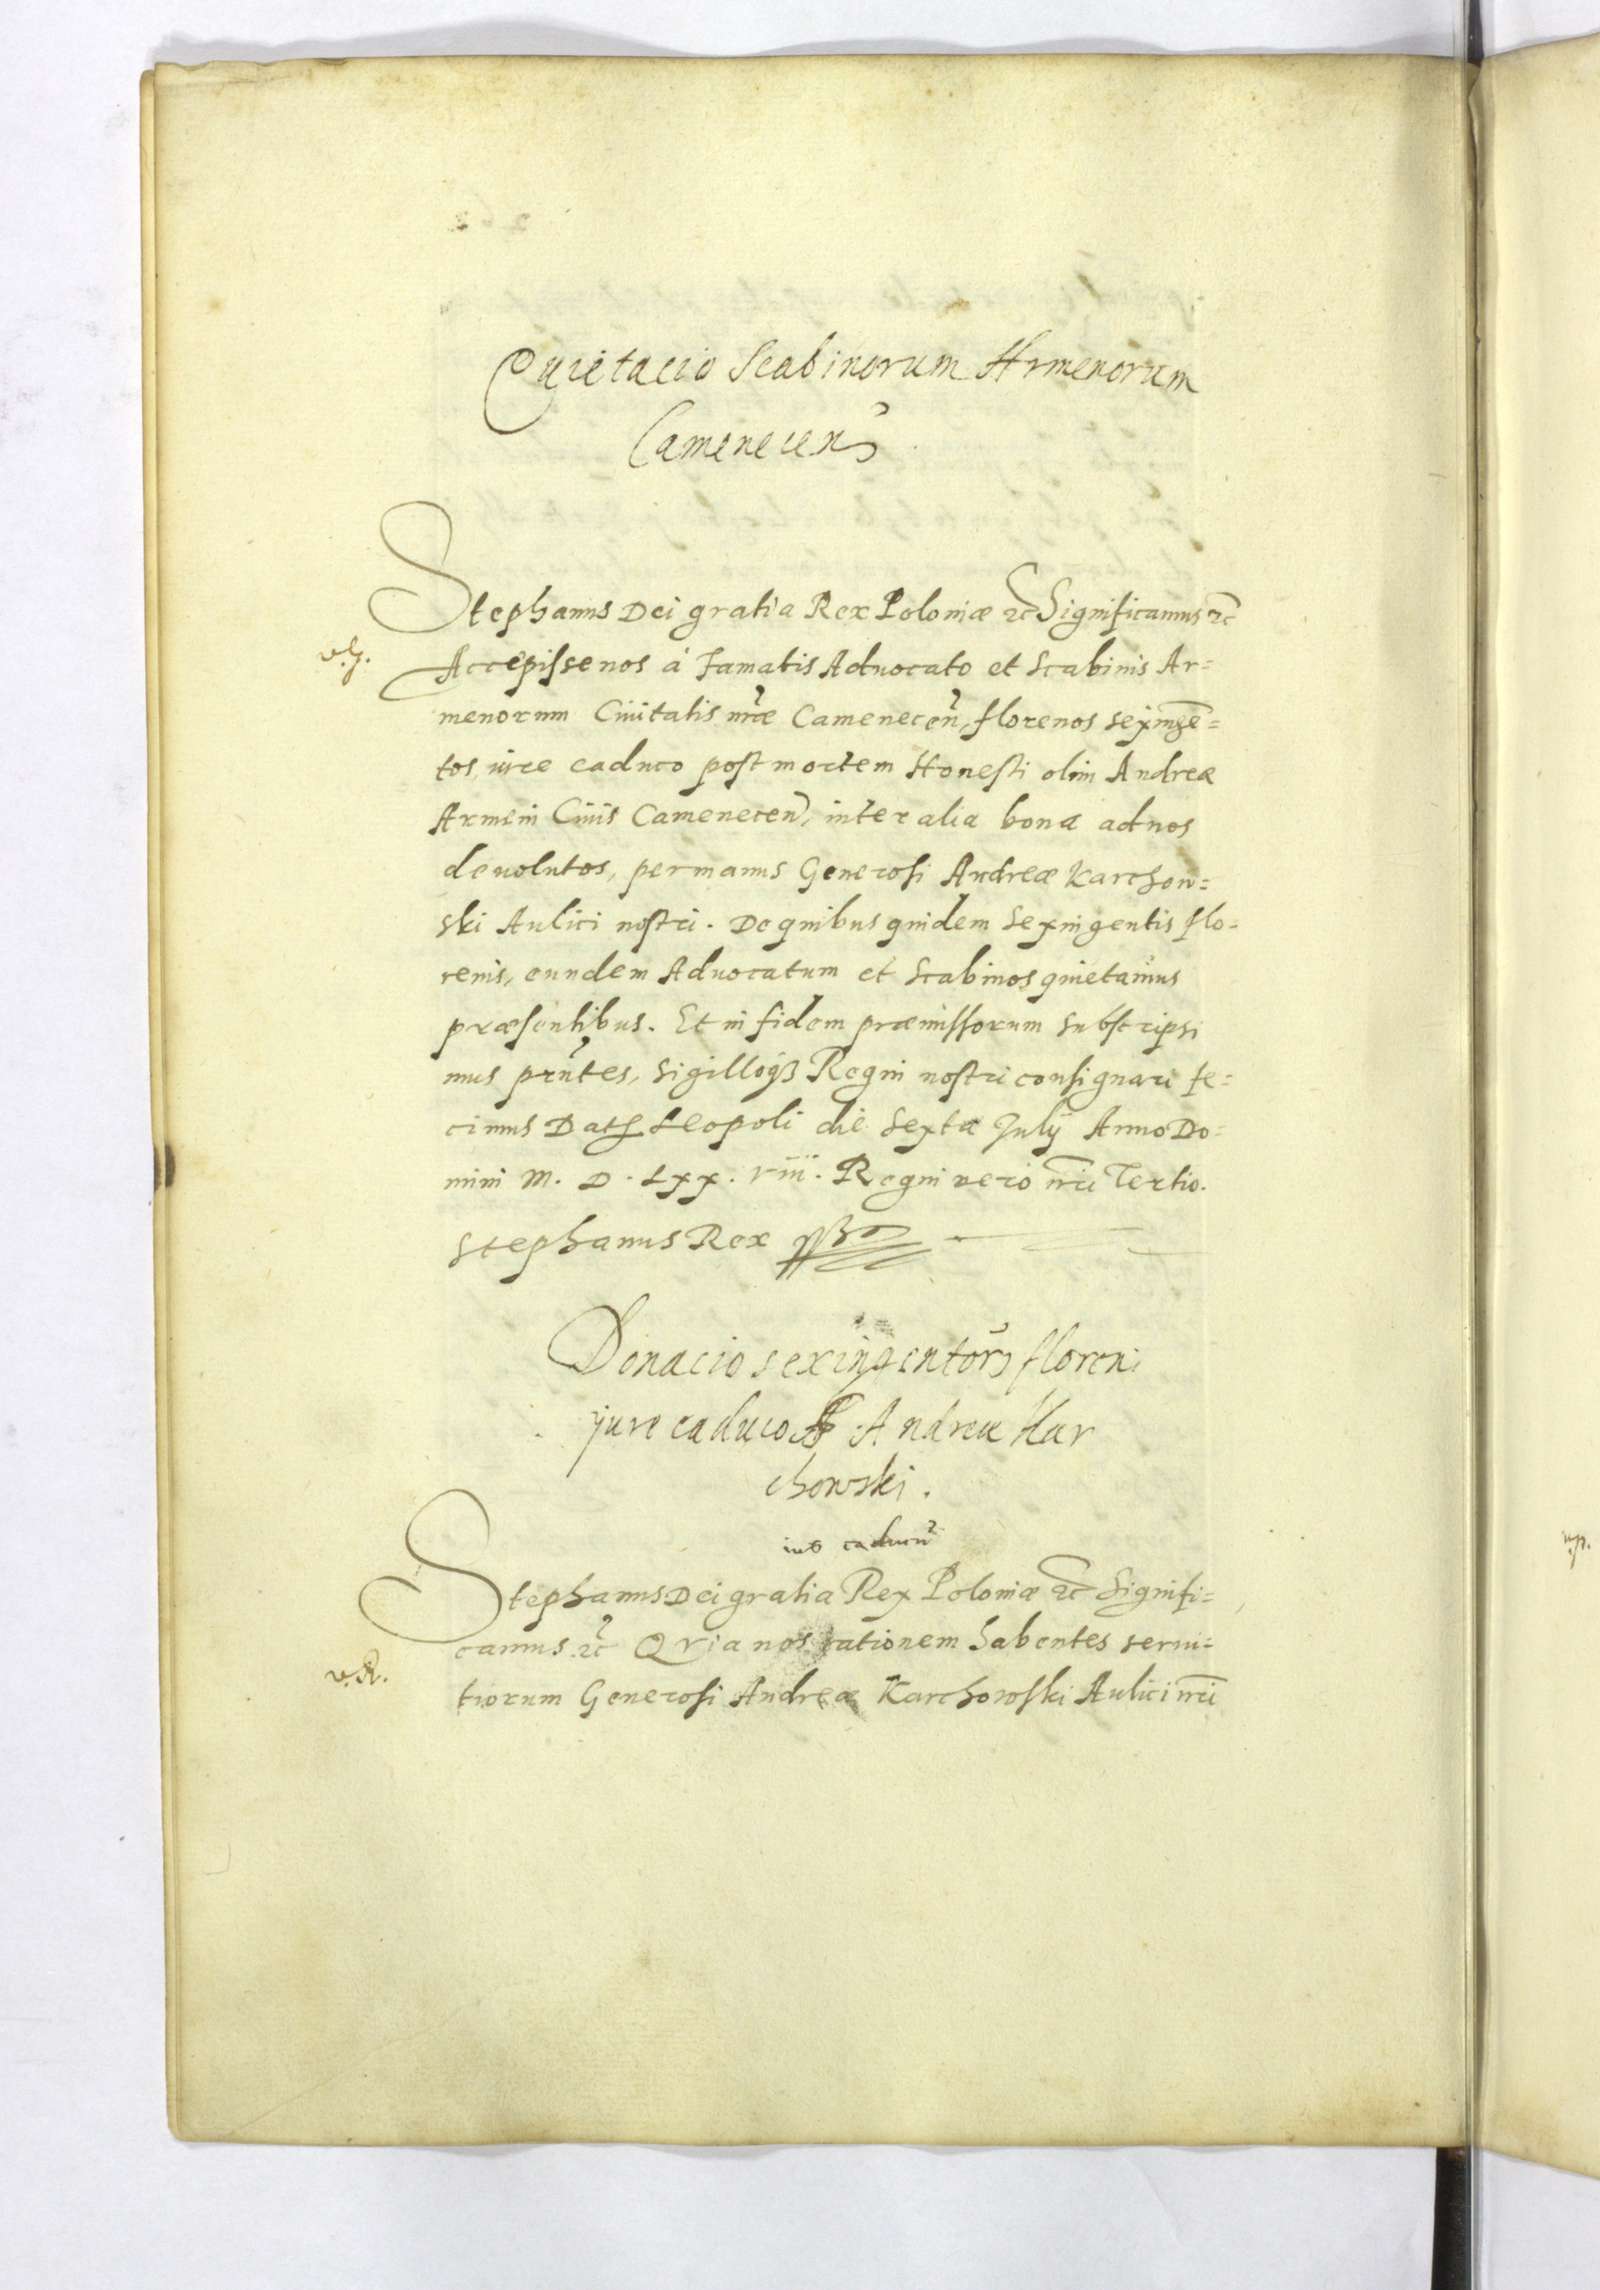 Quietacio Scabinorum Armenorum
Camenecen̄
Stephanus Dei gratia Rex Poloniæ etc Significamus etc
Accepisse nos à Famatis Aduocato et Scabinis Ar=
menorum Ciuitatis nr̄æ Camenecen̄, florenos sexingē=
tos iure caduco post mortem Honesti olim Andreæ
Armeni Ciuis Camenecen̄, inter alia bona ad nos
deuolutos, per manus Generosi Andreæ Karchow=
ski Aulici nostri. De quibus quidem Sexingentis flo=
renis, eundem Aduocatum et Scabinos quietamus
præsentibus. Et in fidem præmissorum subscripsi
mus prn̄tes, sigilloq3 Regni nostri consignari fe=
cimus Dat Leopoli die Sexta Julij Anno Do=
mini M. D. Lxx. viii. Regni vero nr̄i Tertio.
Stephanus Rex
Donacio sexingentor̄ floreni
jure caduco Andreæ Kar
chowski.
ius caducū
Stephanus Dei gratia Rex Poloniæ etc Signifi=
camus etc Quia nos rationem habentes serui=
tiorum Generosi Andreæ Karchowski Aulici nr̄i
v. R.